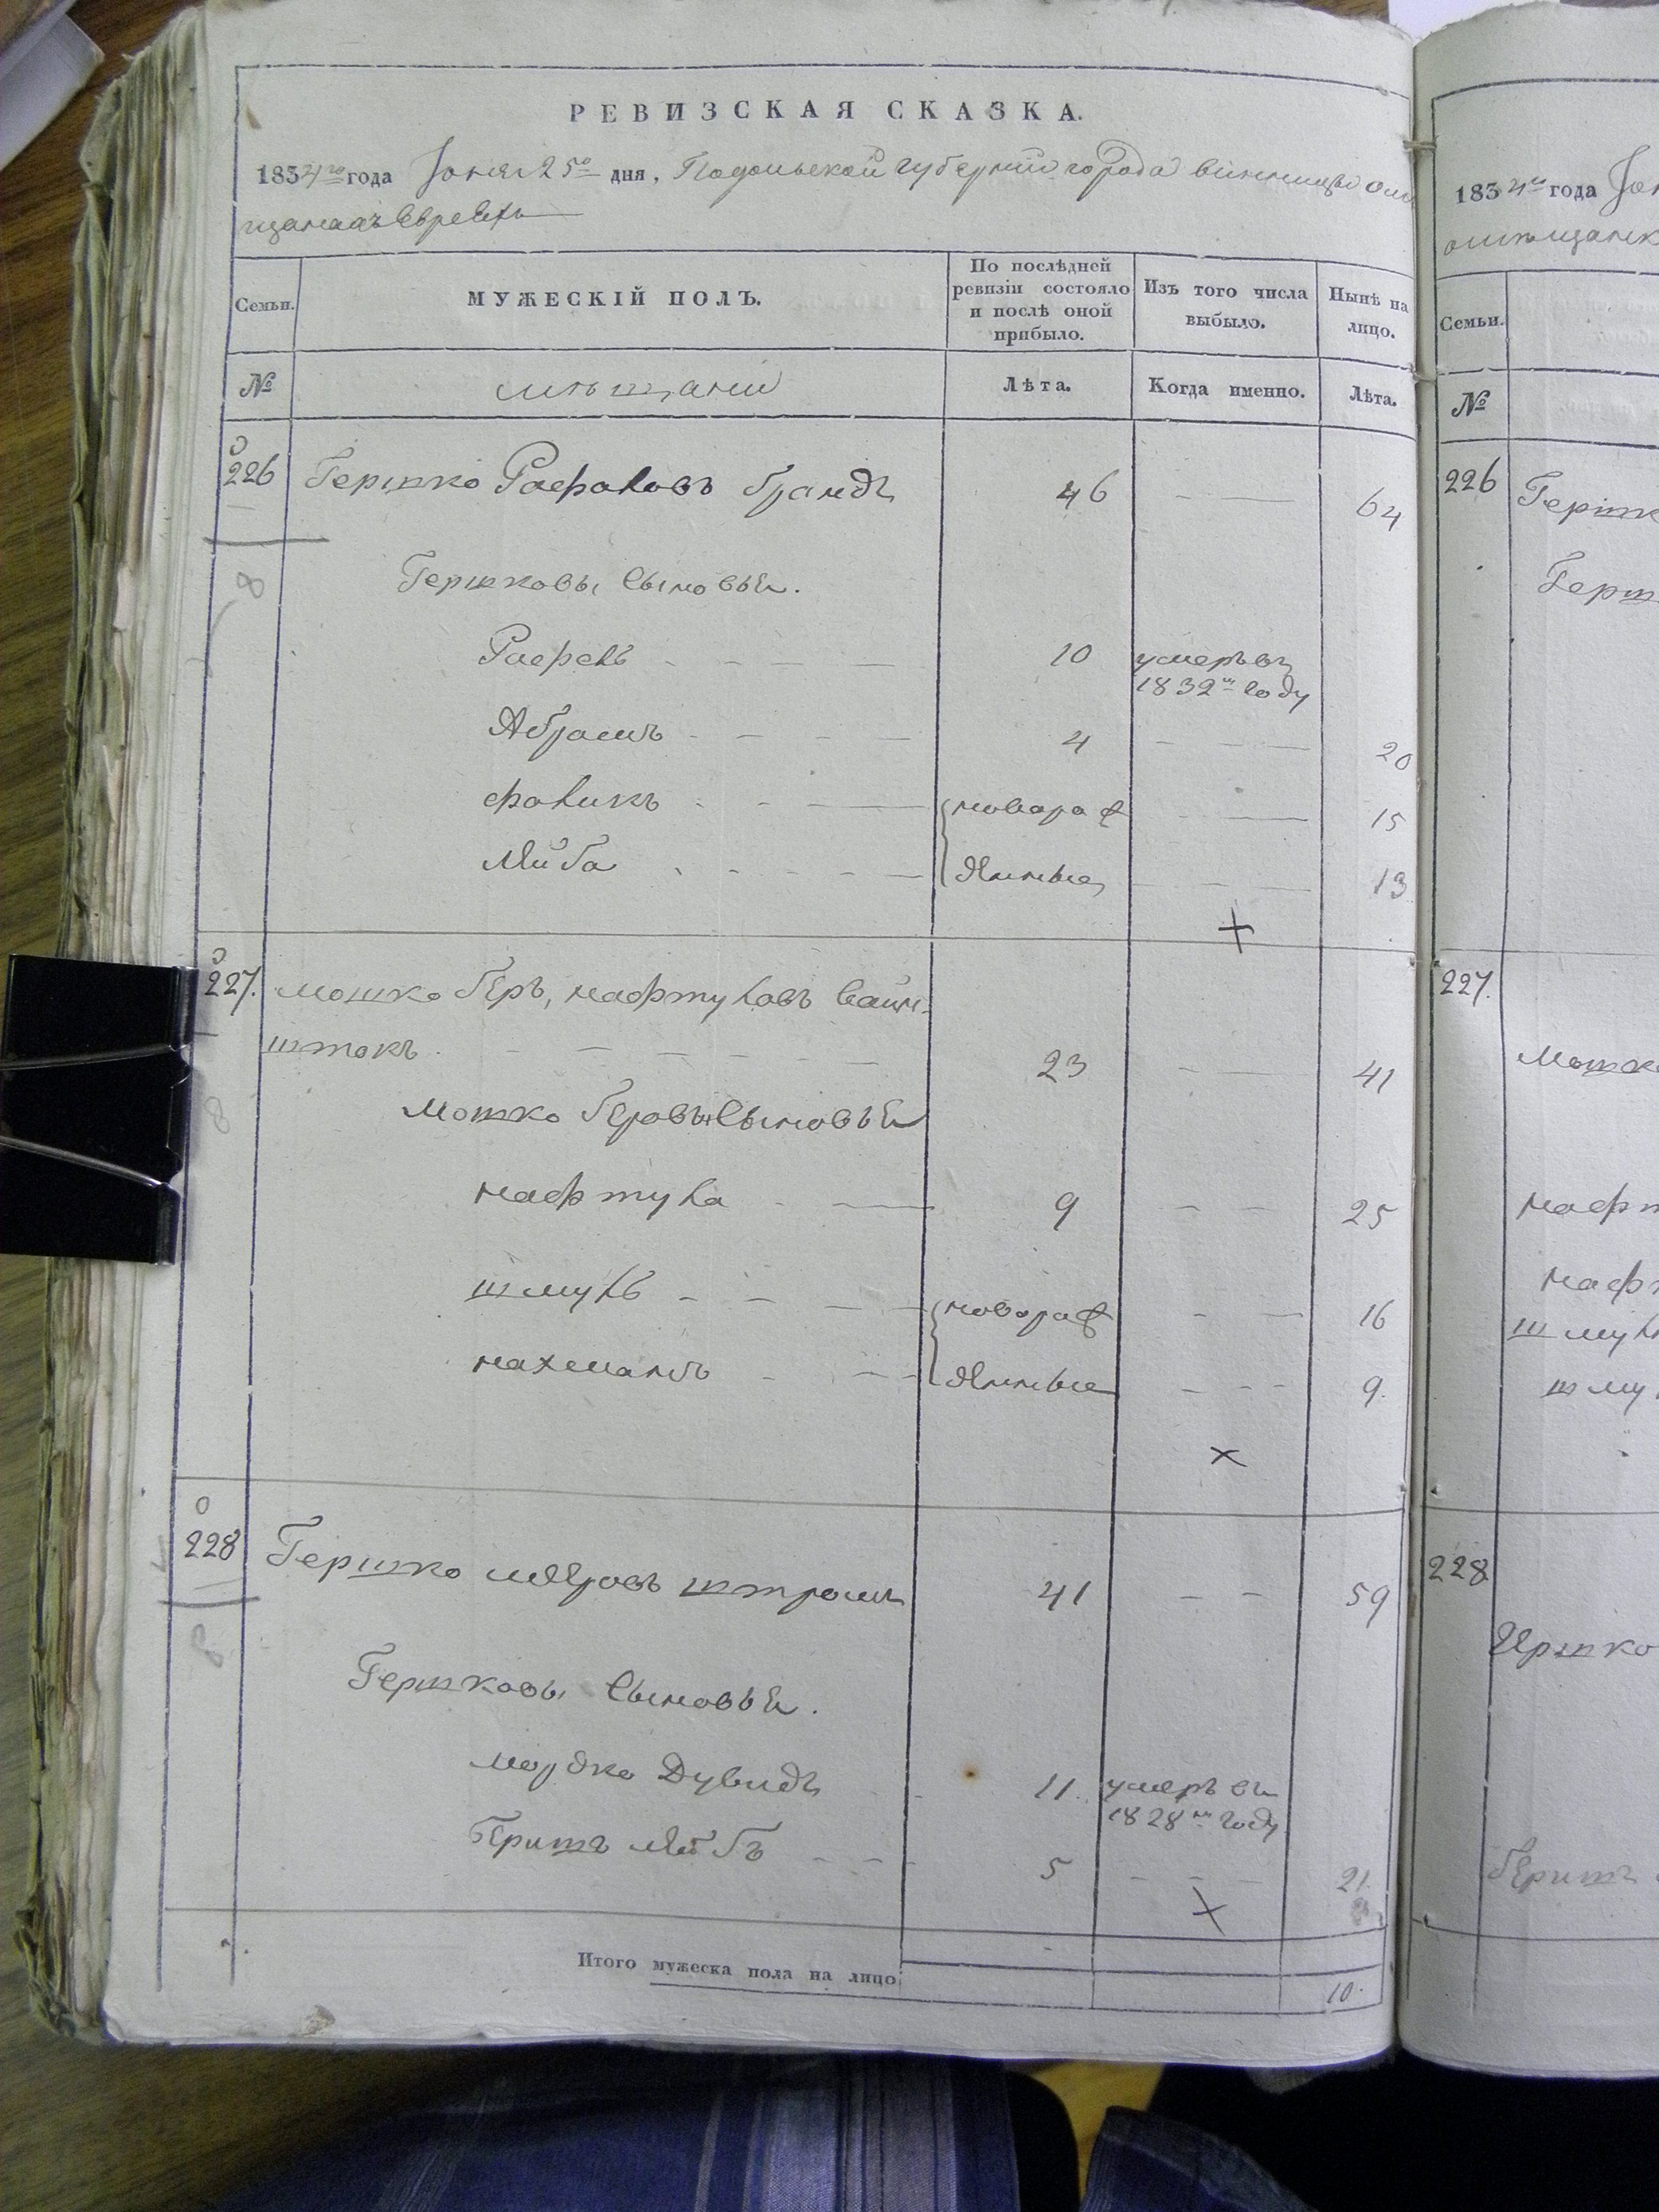 РЕВИЗСКАЯ СКАЗКА.
1834го года Іюня 25го дня, Подольской губерніи города винницы о мѣ
щанахъ Евреяхъ
Семьи. МУЖЕСКІЙ ПОЛЪ. По послѣдней ревизіи состояло и послѣ оной прибыло. Изъ того числа выбыло. Нынѣ на лицо.
№ мѣщане Лѣта. Когда именно. Лѣта.
226 Гершко Рафаловъ брандъ 46 64
Гершковы сыновья.
Рафель 10 умеръ въ
1832м году
Абрамъ 4 20
фаликъ новорож 15
Лейба денные 13
227. мошко беръ, нафтуловъ вайн-
штокъ 23 41
Мошко беровы сыновья
нафтула 9 25
шмуль новорож 16
нахманъ денные 9.
228 Гершко меировъ штромъ 41 59
Гершковы сыновья.
мордко Дувидъ 11. умеръ въ
1828м году
беришъ лейбъ 5 21.
Итого мужеска пола на лицо 10.
1834го года
Семьи.
№
226
227.
228.
Иршко
беришъ